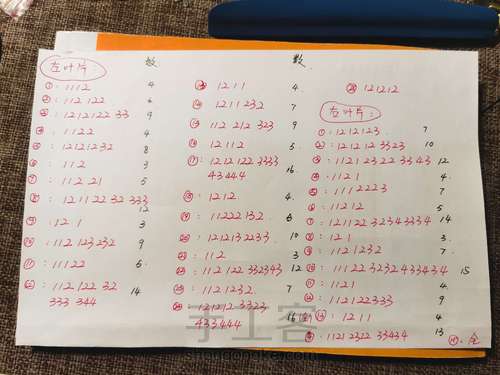 左叶片
①: 1112 4
②: 112 122 6
③: 1212122 33 9
④: 11122 4
⑤: 12121232 8
⑥: 112 3
⑦: 112 21 5
⑧: 1211 22 32 333
12
⑨: 12 1 3
⑩: 112 123232 9
⑪: 11122
⑫: 112122 32
333 344 14
数
1211 4
⑭ 1211232 7
⑮ 112 212 323 9
⑯: 12112 5
⑰: 1212122 3333
43444 16
⑱: 1212 4
⑲: 11222132
⑳: 1212132233 10
112 3
112 122 332343 12
1121232 7
121212 3323
433444 16
121212
右叶片:
①: 1212123 7
②: 121212 3323 10
③: 1121 2322 3343 12
④: 1121 4
⑤: 1112223 7
⑥: 11212 5
⑦: 121122 32343344 14
⑧: 121 3
⑨: 1121232 7
⑩: 11122 3232 433434 15
⑪: 1121 4
⑫: 112122333 9
1211 4
1121 2322 33434 13
手工客